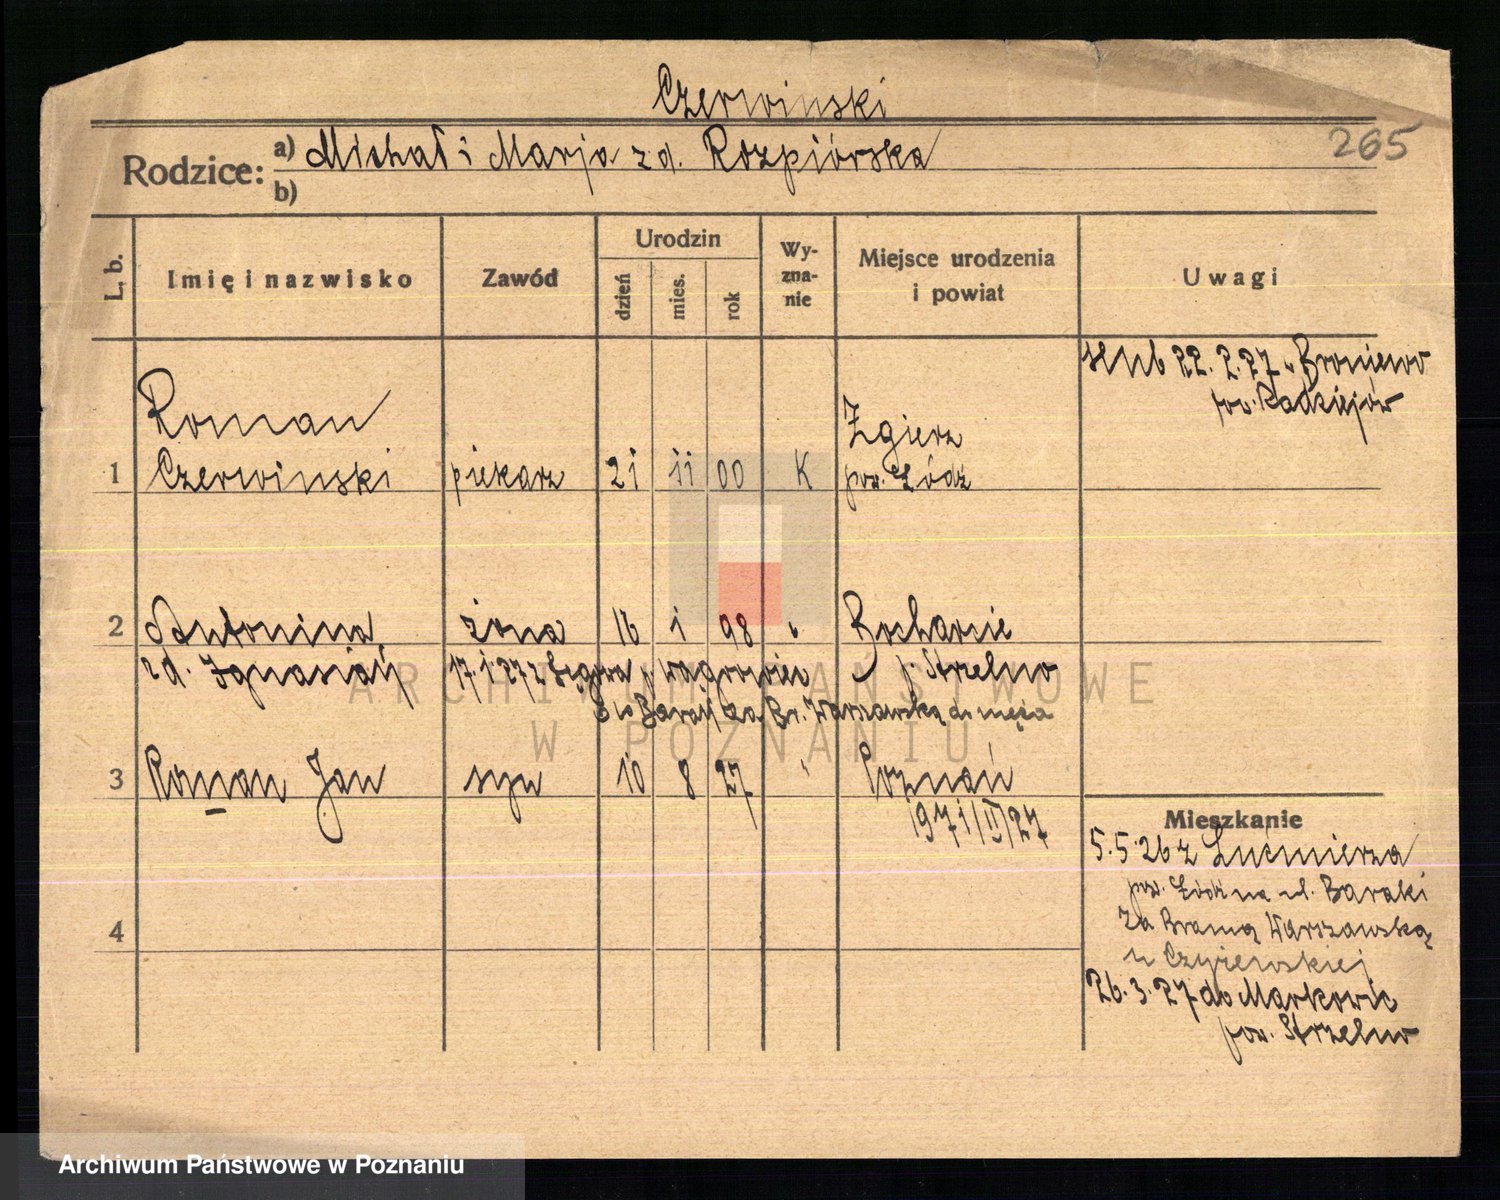 Czerwinski
265
Rodzice: a) Michał i Marja zd. Rozpiórska
b)
L. b.
Imię i nazwisko
Zawód
Urodzin
dzień
mies.
rok
Wy-
zna-
nie
Miejsce urodzenia
i powiat
Uwagi
ślub 22. 2. 27 w Broniewo
pow. Radziejów
Roman
Zgierz
1 Czerwinski piekarz 21 11 00 K pow. Łódź
2 Antonina żona 16 1 98 " Bycharcie
zd. Ignasiak 17. 1. 27 z p. Wągrowiec p. Strzelno
Baraki za Br. Warszawską do męża
3 Roman Jan syn 10 8 27 " Poznań
1971/II/27
Mieszkanie
5. 5. 26 z Lućmierza
pow. Łódź na ul. Baraki
za Bramą Warszawską
u Czyżewskiej
4
26. 3. 27 do Markowic
pow. Strzelno
ARCHIWUM PAŃSTWOWE
W POZNANIU
Archiwum Państwowe w Poznaniu